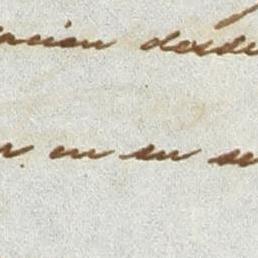 acion desde
en su